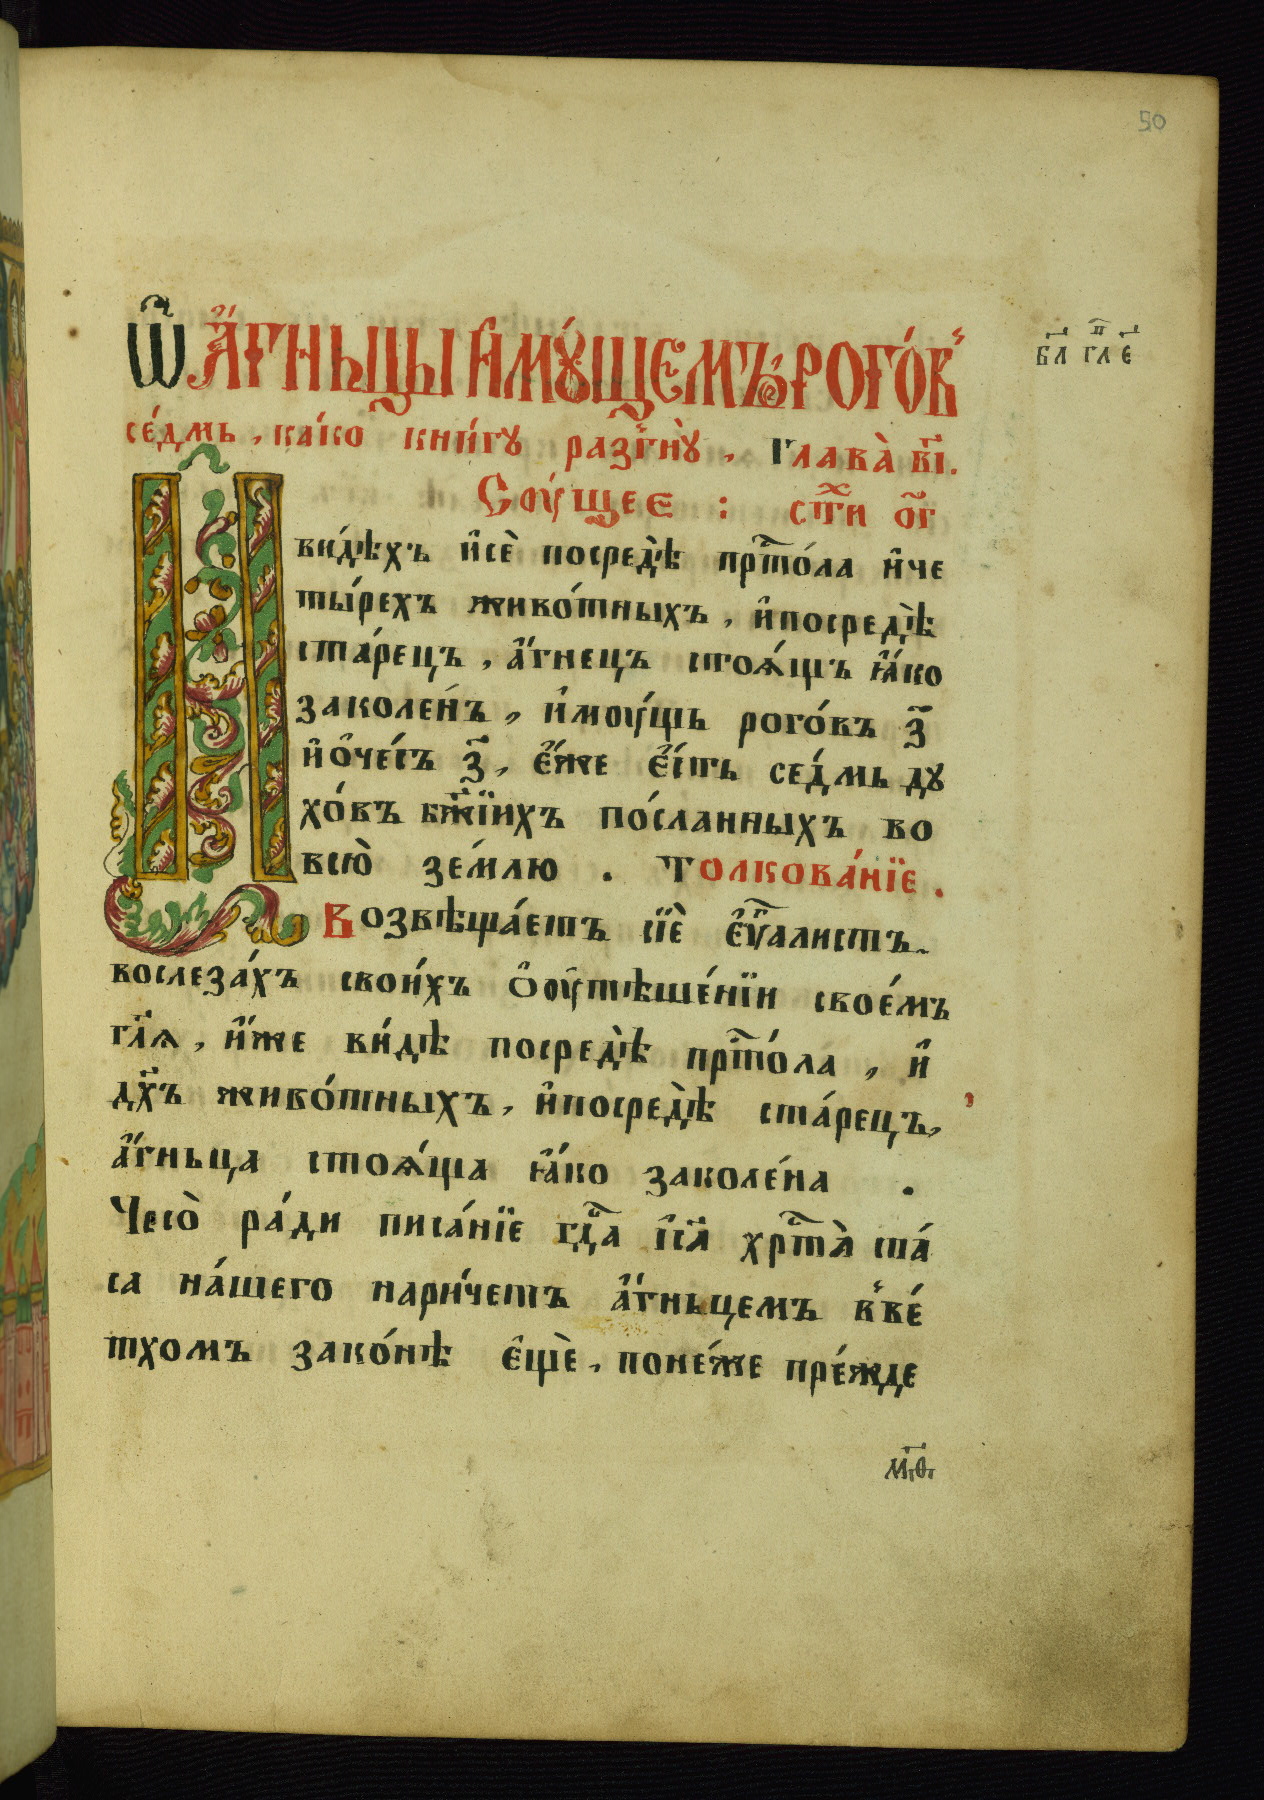 50
Ѿ А҆́гньцы и҆мꙋ́щемъ рого́в̾
се́дмь, ка́ко кни́гу раз̾гнꙋ̀, Глава̀ в҃і.
Соу́щее : ст҃ы́и о҃г
бл гл е
И
ви́дѣхъ и҆сѐ посредѣ̀ прⷭ҇то́ла и҆че
ты́рехъ живо́тныхъ, и҆посредѣ̀
ста́рецъ, а҆́гнецъ стоѧ́щь ꙗ҆́ко
заколе́нъ, и҆моу́щь рого́въ з҃
и҆о҆че́съ з҃, є҆́же є҆́сть се́дмь ду
хо́въ бж҃їихъ по́сланныхъ во
всю̀ зе́млю . Толкова́нїе .
Возвѣща́етъ сїѐ є҆ѵⷢ҇алистъ
вослеза́хъ свои́хъ ѻ҆оутѣше́нїи свое́мъ
гл҃ѧ, и҆́же ви́дѣ посредѣ̀ прⷭ҇то́ла, и҆
д҃хъ живо́тныхъ, и҆посредѣ̀ ста́рецъ,
а҆́гньца стоѧ́ща ꙗ҆́ко заколе́на .
Чесо̀ ра́ди писа́нїе гдⷭ҇а і҆с҃а хрⷭ҇та̀ спа́
са на́шего нари́четъ а҆́гньцемъ в̾ве́
тхомъ зако́нѣ є҆щѐ, поне́же пре́жде
м҃ѳ